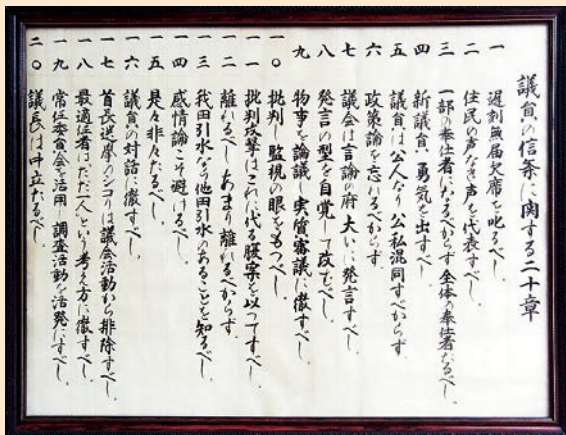 議員の信条に関する二十章
一 遅刻無届欠席を叱るべし。
二 住民の声なき声を代表すべし。
三 一部の奉仕者になるべからず全体の奉仕者なるべし。
四 新議員、勇気を出すべし。
五 議員は公人なり公私混同すべからず。
六 政策論を忘れるべからず。
七 議会は言論の府大いに発言すべし。
八 発言の型を自覚して改むべし。
九 物事を論議し実質審議に徹すべし。
一〇 批判し監視の眼をもつべし。
一一 批判攻撃はこれに代る腹案を以ってすべし。
一二 離れるべしあまり離れるべからず。
一三 我田引水なり他田引水のあることを知るべし。
一四 感情論こそ避けるべし。
一五 是々非々たるべし。
一六 議員の対話に徹すべし。
一七 首長選挙のシコリは議会活動から排除すべし。
一八 最適任者はただ一人という考え方に徹すべし。
一九 常任委員会を活用し調査活動を活発にすべし。
二〇 議長は中立たるべし。